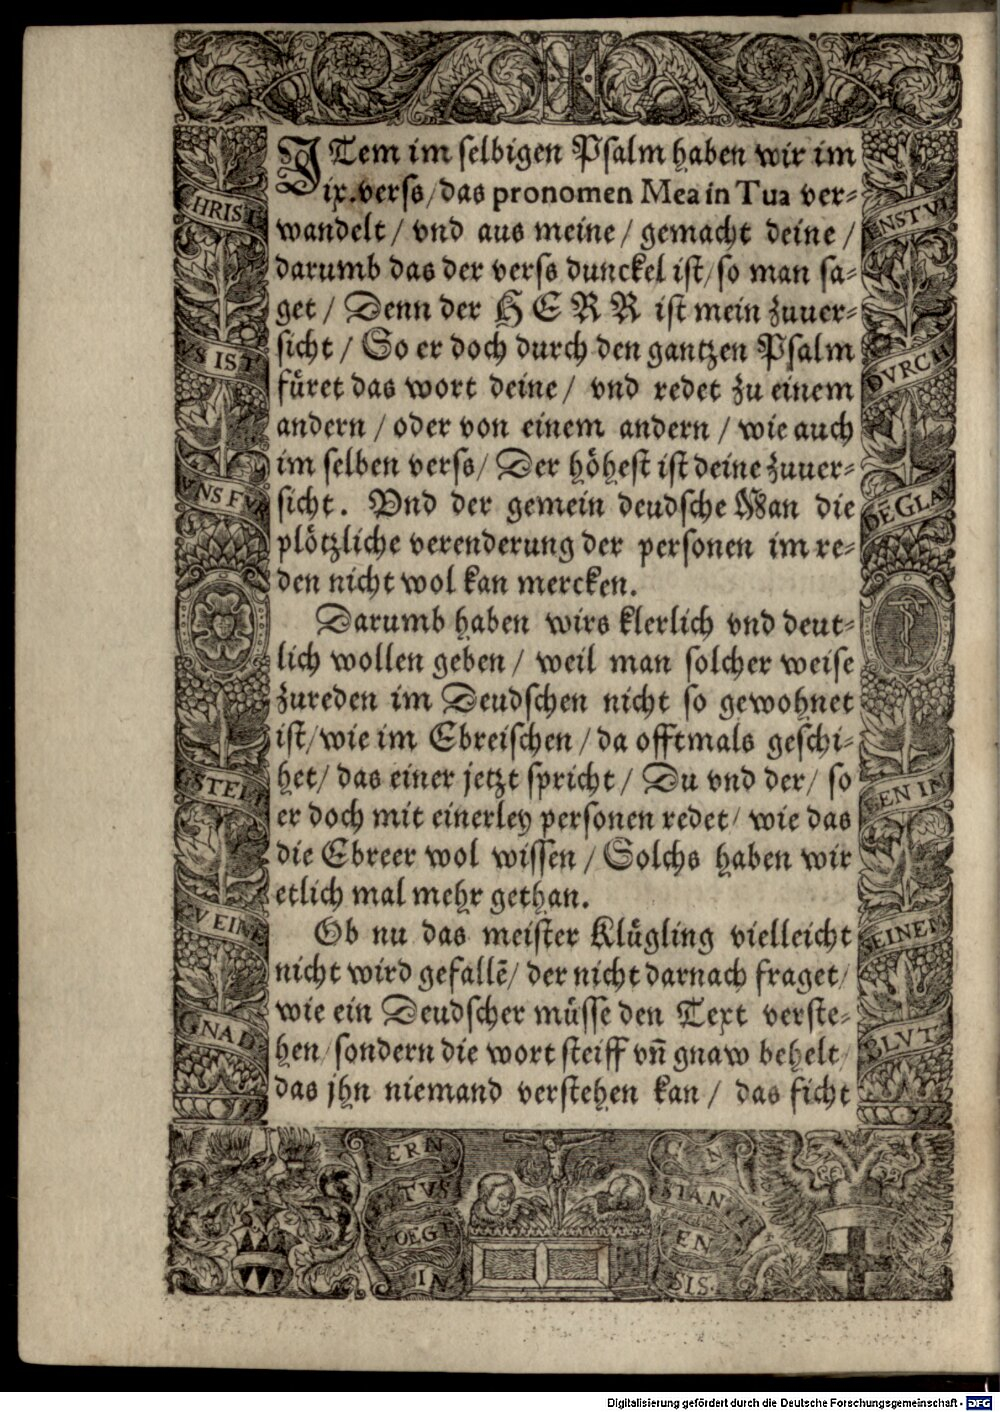 JTem im selbigen Psalm haben wir im
ix. verss/das pronomen Mea in Tua ver⸗
wandelt / vnd aus meine / gemacht deine /
darumb das der verss dunckel ist/so man sa⸗
get / Denn der HERR ist mein zuuer⸗
sicht / So er doch durch den gantzen Psalm
füret das wort deine / vnd redet zu einem
andern / oder von einem andern / wie auch
im selben verss/ Der höhest ist deine zuuer⸗
sicht. Vnd der gemein deudsche Man die
plötzliche verenderung der personen im re⸗
den nicht wol kan mercken.
Darumb haben wirs klerlich vnd deut⸗
lich wollen geben / weil man solcher weise
zureden im Deudschen nicht so gewohnet
ist/wie im Ebreischen / da offtmals geschi⸗
het/ das einer jetzt spricht / Du vnd der/ so
er doch mit einerley personen redet/ wie das
die Ebreer wol wissen / Solchs haben wir
etlich mal mehr gethan.
Ob nu das meister Klügling vielleicht
nicht wird gefallē/ der nicht darnach fraget/
wie ein Deudscher müsse den Text verste⸗
hen/sondern die wort steiff vn̄ gnaw behelt/
das jhn niemand verstehen kan / das ficht
CHRIST
VS IST
VNS FVR
GSTELT
ZV EINE
GNAD
ENSTVL
DVRCH
DE GLAV
BEN IN
SEINEM
BLVT
ERN
TVS
OEG
IN
STAN
EN
SIS.
Digitalisierung gefördert durch die Deutsche Forschungsgemeinschaft - DFG